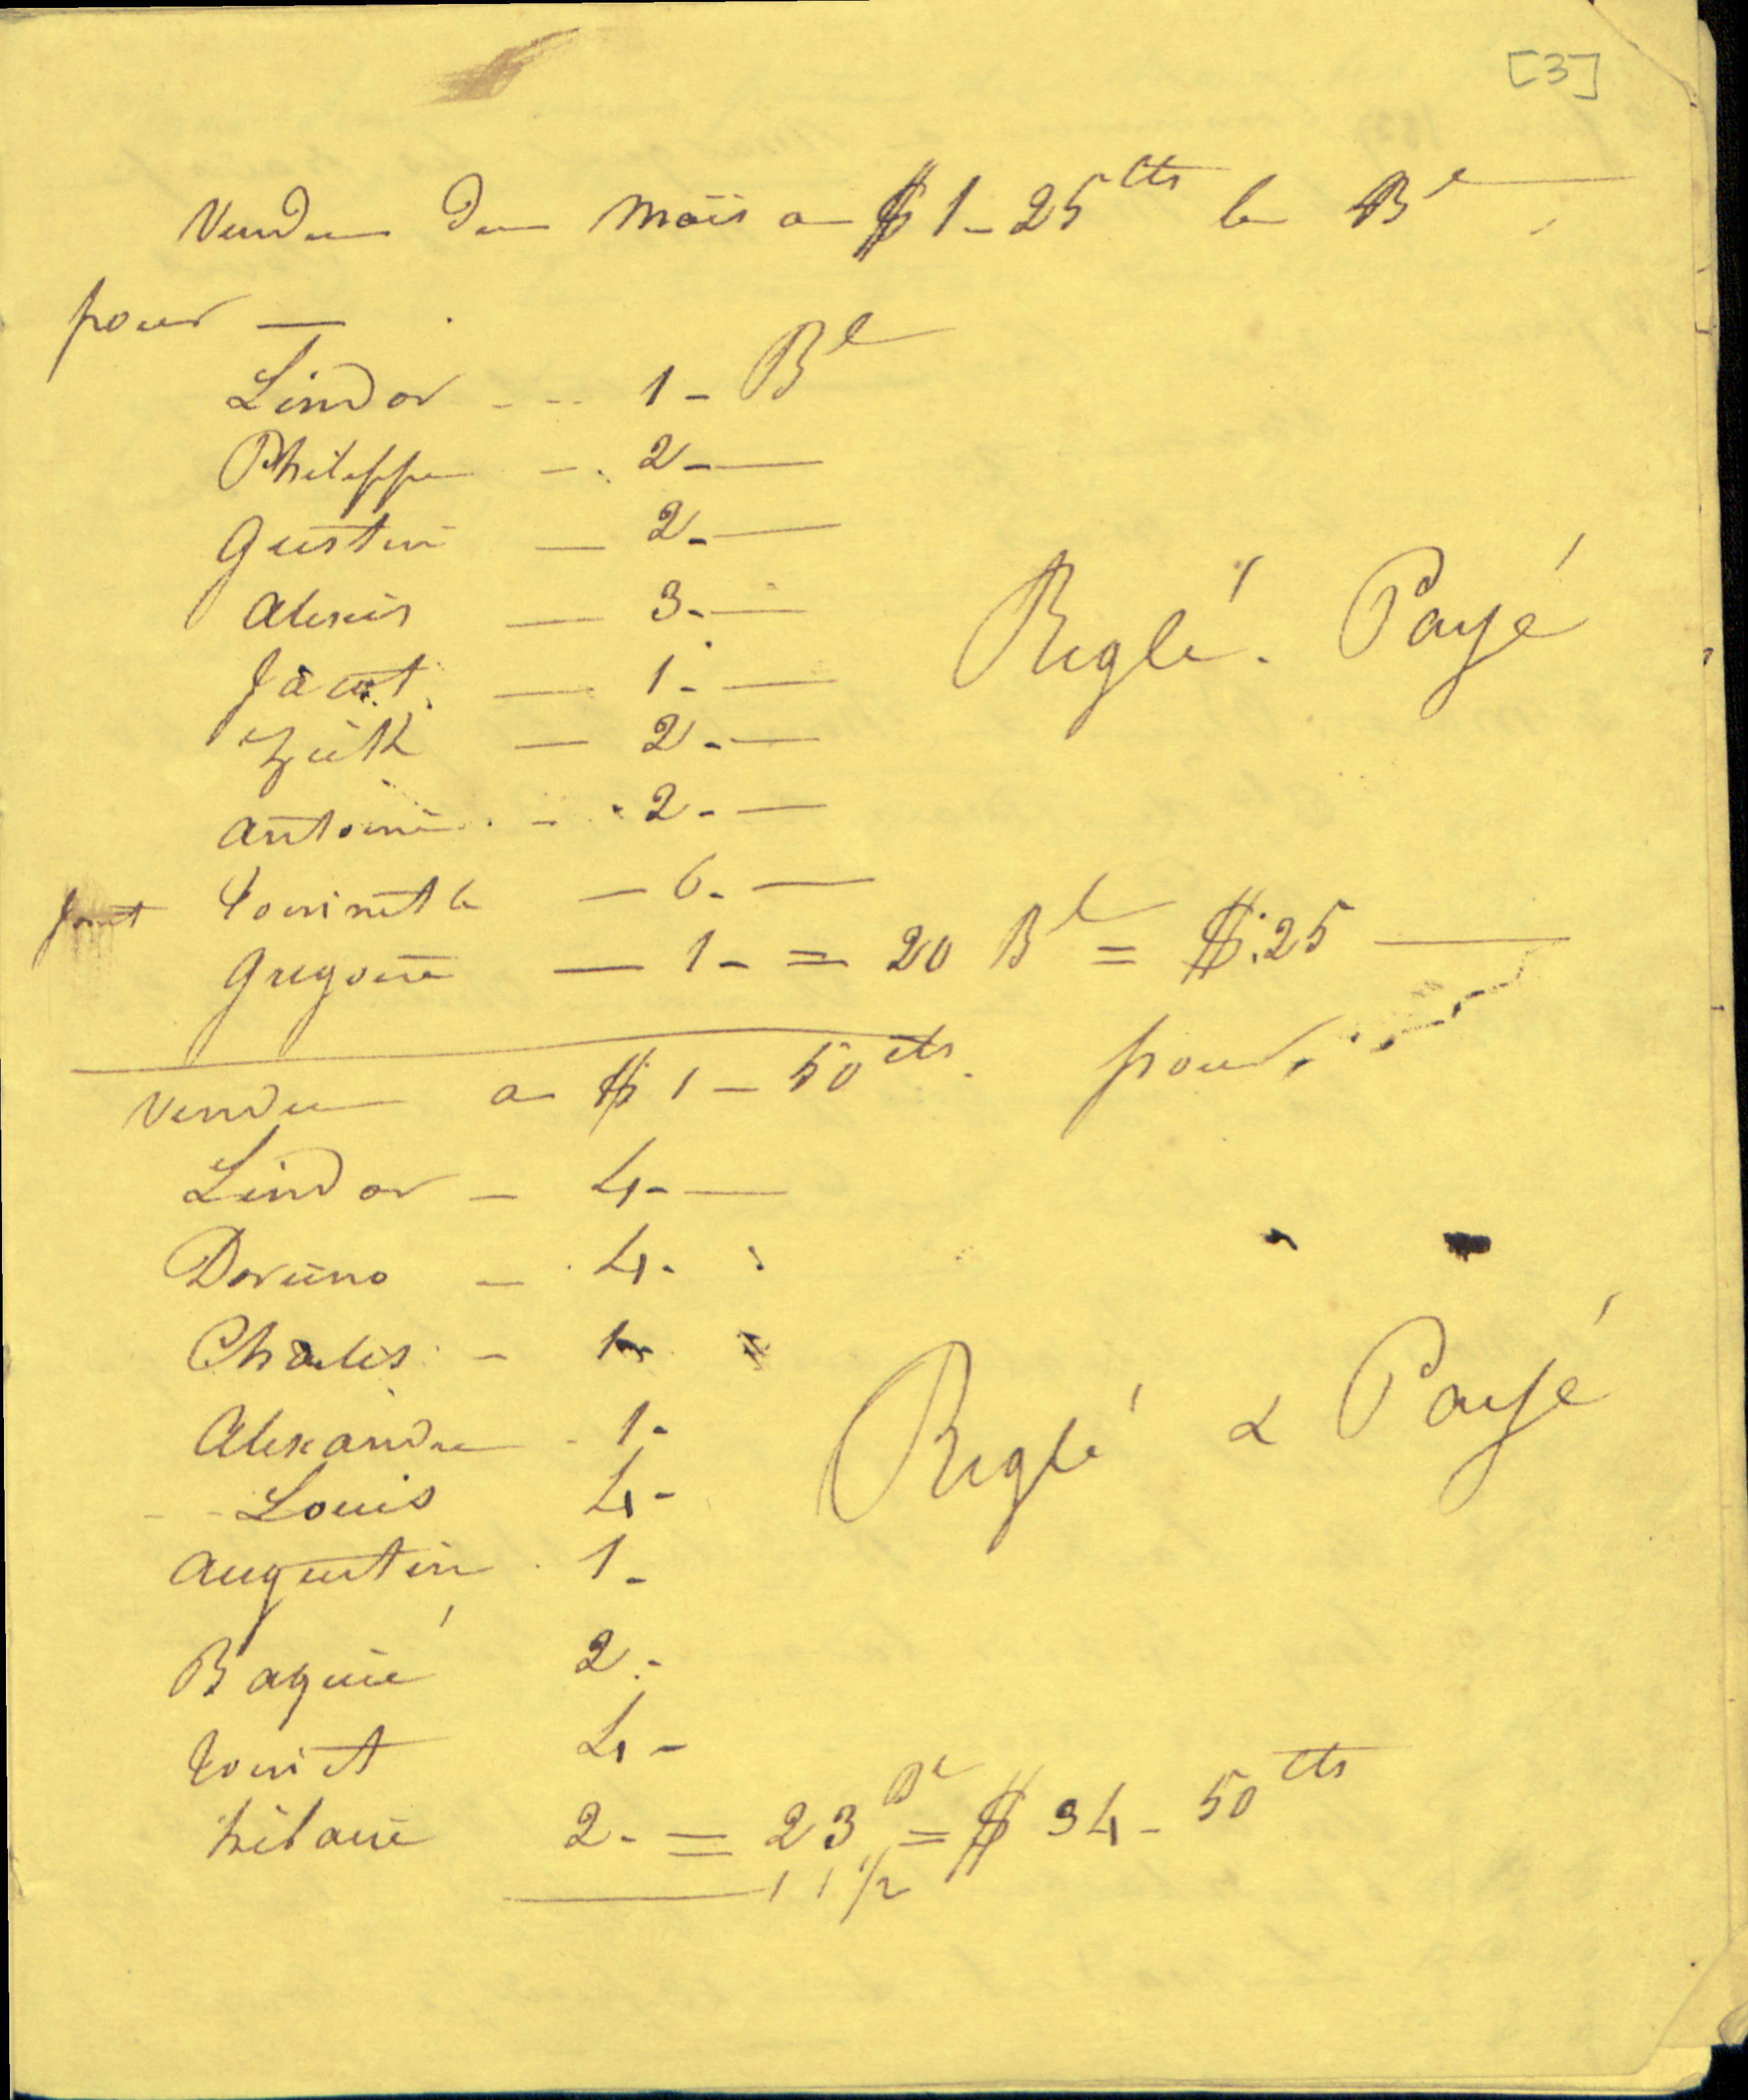 [3]
Vendu du Maïs a $ 1 - 25 cts le Bl
pour —
Lindor - - - 1 - Bl
Philippe - . 2 - —
Gustin — 2 - —
Alexis — 3 - —
— 1 - —
— 2 - —
Antoine . - . 2 - —
— 6 - —
Gregoire — 1 - = 20 Bl = $ 25 —
Reglé . Payé
Vendu a $ 1 - 50 cts . pour
Lindor - 4 - —
- 4 -
Charles - 1 -
Alexandre - 1 -
Louis 4 -
Augustin . 1 -
Reglé & Payé
Baquié 2 -
4 -
hilaire 2 - = 23 Bl = $ 34 - 50 cts
11 1/2